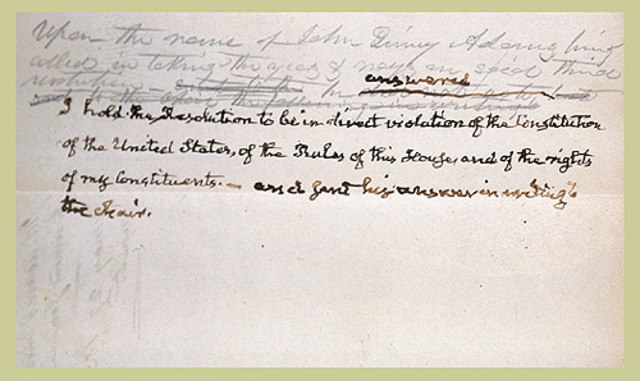 Upon the name of John Quincy Adams being
called in taking the yeas & nays on said third
resolution he answered
I hold the Resolution to be in direct violation of the Constitution
of the United States, of the Rules of this House, and of the rights
of my Constituents. — and sent his answer in writing to
the Chair.